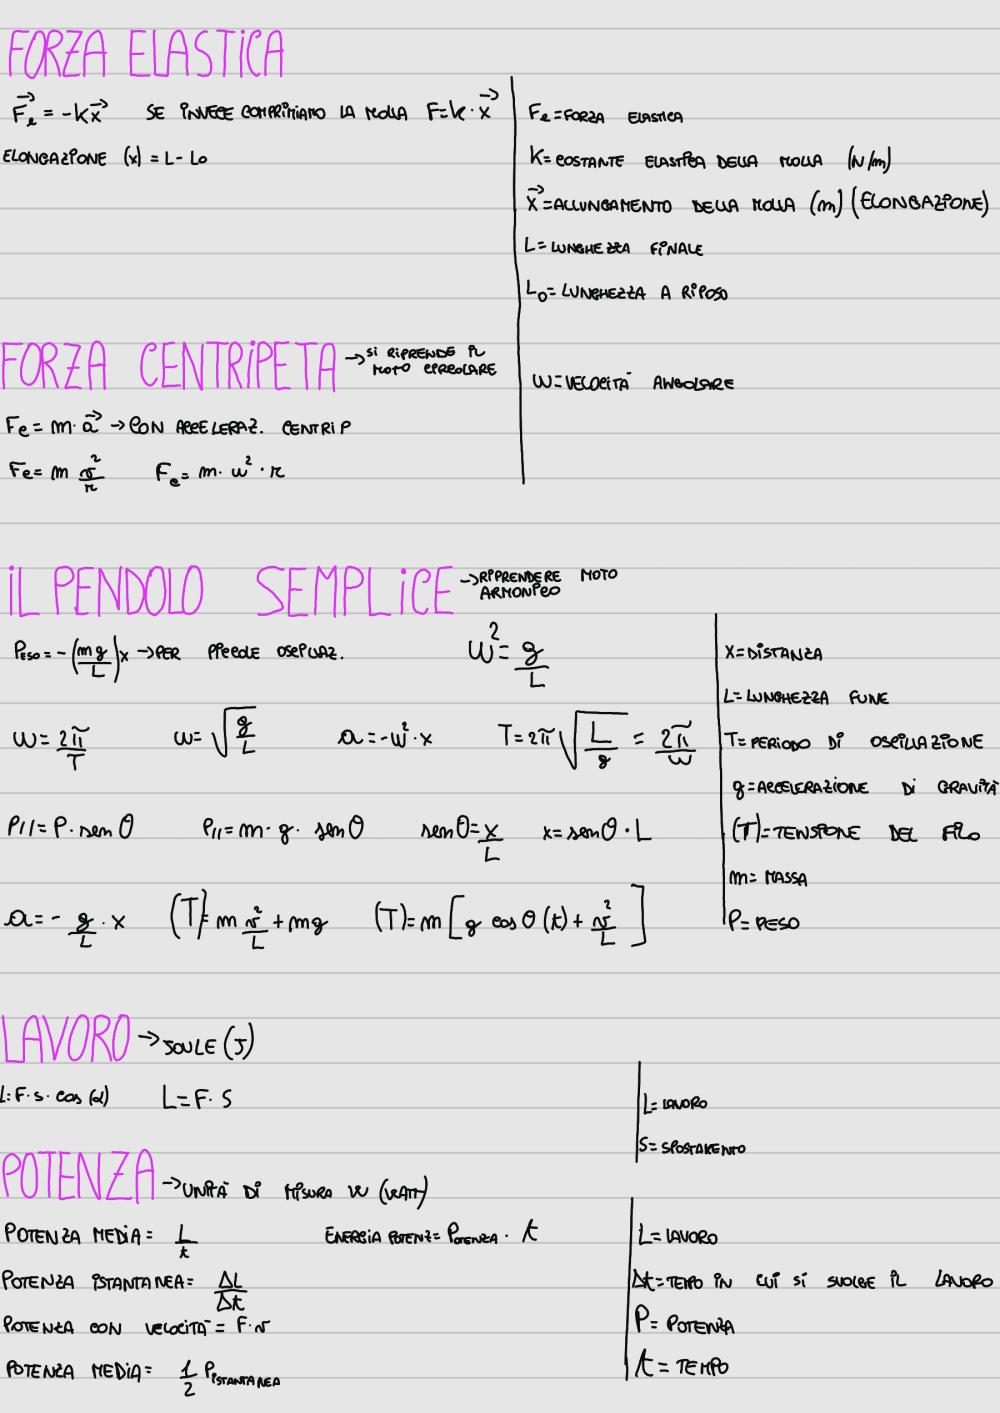 FORZA ELASTICA
F⃗e = -kx⃗ SE INVECE COMPRIMIAMO LA MOLLA F=k·x⃗
ELONGAZIONE (x) = L - L0
Fe = FORZA ELASTICA
K = COSTANTE ELASTICA DELLA MOLLA (N/m)
x⃗ = ALLUNGAMENTO DELLA MOLLA (m) (ELONGAZIONE)
L = LUNGHEZZA FINALE
L0 = LUNGHEZZA A RIPOSO
FORZA CENTRIPETA → SI RIPRENDE IL
MOTO CIRCOLARE
ω = VELOCITÀ ANGOLARE
Fc = m·a⃗ → CON ACCELERAZ. CENTRIP
Fc = m v²/r Fc = m·ω²·r
IL PENDOLO SEMPLICE → RIPRENDERE MOTO
ARMONICO
PESO = -(mg/L)x → PER PICCOLE OSCILLAZ. ω² = g/L
ω = 2π/T ω = √(g/L) a = -ω²·x T = 2π√(L/g) = 2π/ω
P// = P·senθ P// = m·g·senθ senθ = x/L x = senθ·L
a = - g/L · x (T) = m v²/L + mg (T) = m[g cosθ(t) + v²/L]
x = DISTANZA
L = LUNGHEZZA FUNE
T = PERIODO DI OSCILLAZIONE
g = ACCELERAZIONE DI GRAVITÀ
(T) = TENSIONE DEL FILO
m = MASSA
P = PESO
LAVORO → JOULE (J)
L = F·s·cos(α) L = F·S
L = LAVORO
S = SPOSTAMENTO
POTENZA → UNITÀ DI MISURA W (WATT)
POTENZA MEDIA = L/t ENERGIA POTENZ = POTENZA · t
POTENZA ISTANTANEA = ΔL/Δt
POTENZA CON VELOCITÀ = F·v
POTENZA MEDIA = 1/2 PISTANTANEA
L = LAVORO
Δt = TEMPO IN CUI SI SVOLGE IL LAVORO
P = POTENZA
t = TEMPO